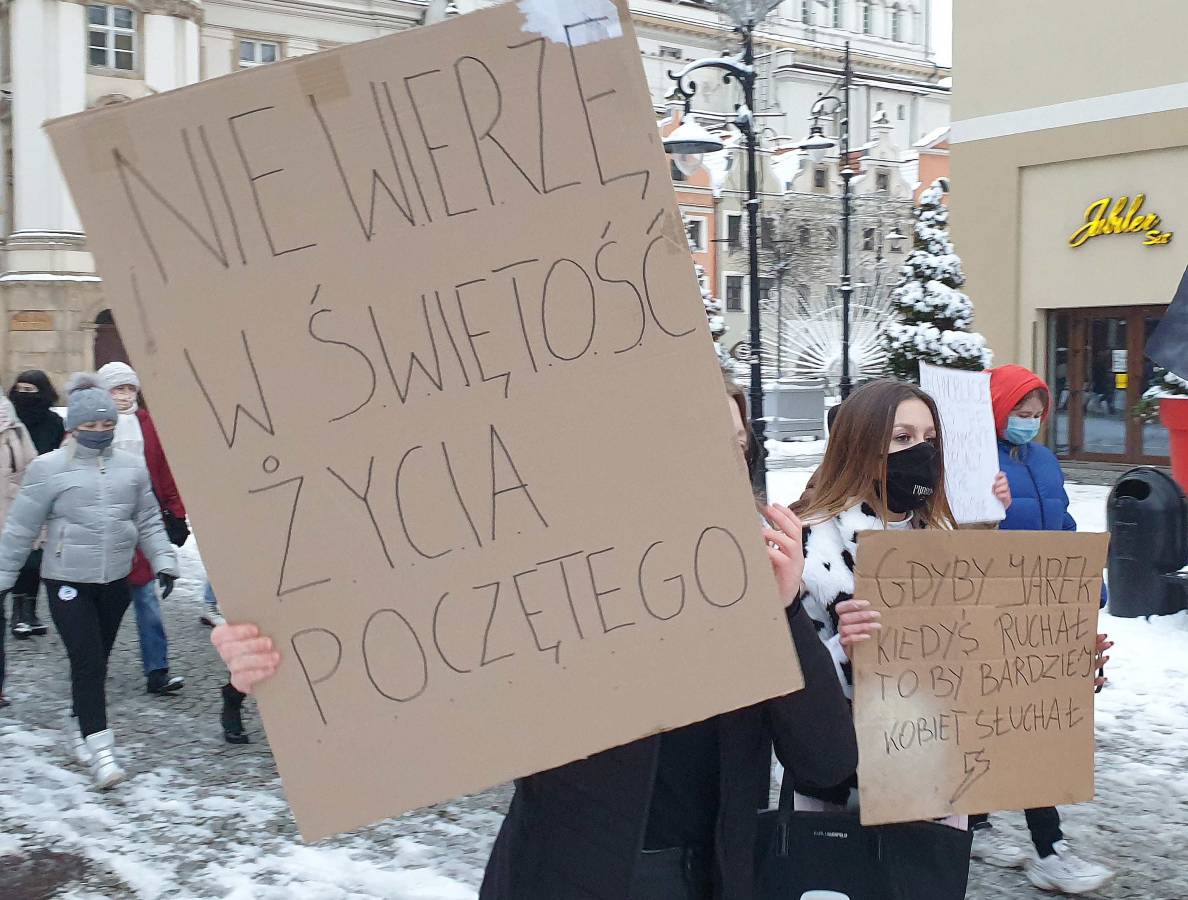 NIE WIERZĘ
W ŚWIĘTOŚĆ
ŻYCIA
POCZĘTEGO
Jubiler
GDYBY JAREK
KIEDYŚ RUCHAŁ
TO BY BARDZIEJ
KOBIET SŁUCHAŁ